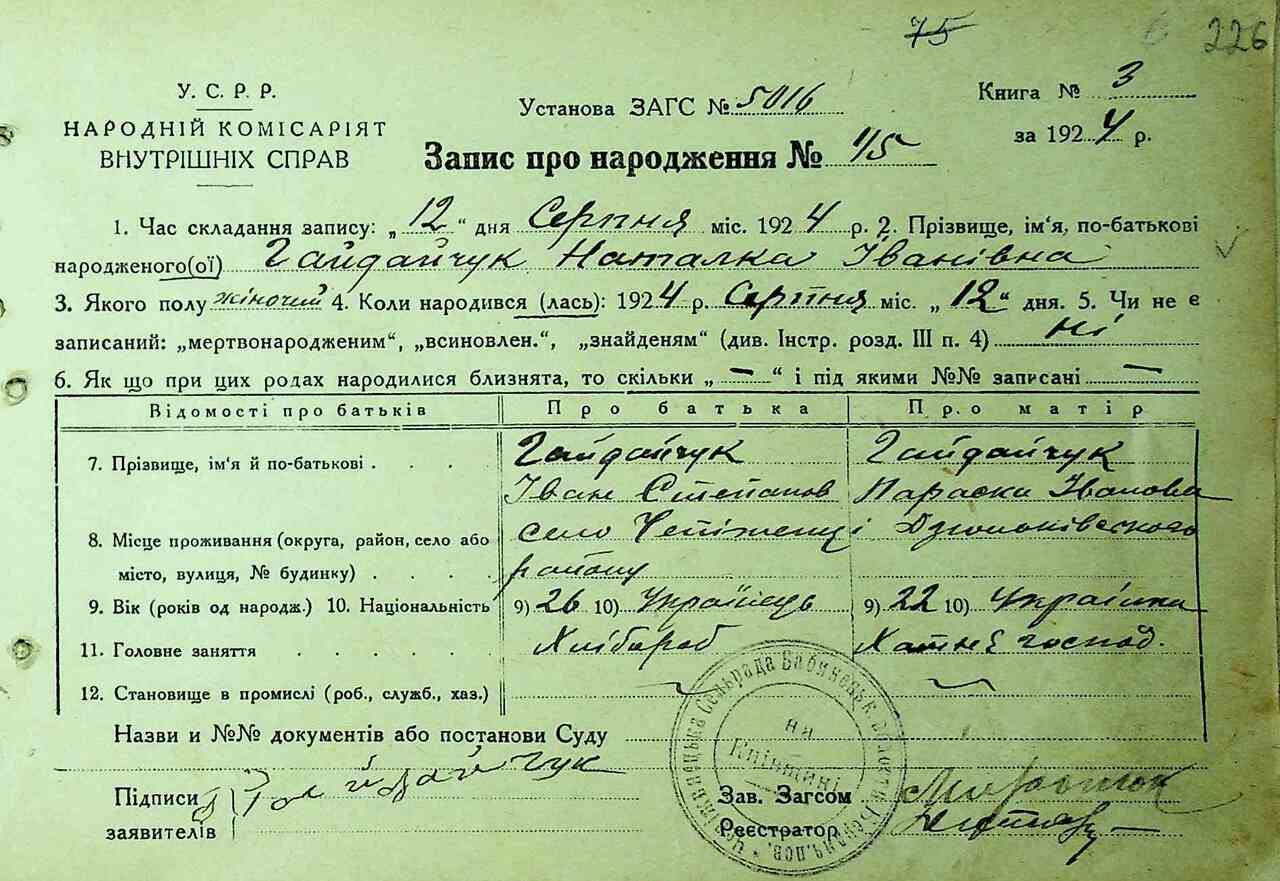 75
226
У. С. Р. Р.
НАРОДНІЙ КОМІСАРІЯТ
ВНУТРІШНІХ СПРАВ
Установа ЗАГС № 5016
Книга № 3
за 1924 р.
Запис про народження № 45
1. Час складання запису: „12“ дня Серпня міс. 1924 р. 2. Прізвище, ім‘я, по-батькові
народженого(ої) Гайдайчук Наталка Іванівна
3. Якого полу жіночий 4. Коли народився (лась): 1924 р. Серпня міс. „12“ дня. 5. Чи не є
записаний: „мертвонародженим“, „всиновлен.“, „знайденям“ (див. Інстр. розд. III п. 4) Ні
6. Як що при цих родах народилися близнята, то скільки „—“ і під якими №№ записані —
Відомості про батьків Про батька Пр.о матір
7. Прізвище, ім‘я й по-батькові . . . Гайдайчук Гайдайчук
Іван Степанов Параска Іванова
8. Місце проживання (округа, район, село або село
місто, вулиця, № будинку) . . . . району
9. Вік (років од народж.) 10. Національність 9) 26 10) Українець 9) 22 10) Українка
11. Головне заняття . . . . . Хлібороб Хатнє господ.
12. Становище в промислі (роб., служб., хаз.)
Назви и №№ документів або постанови Суду
Підписи Гайдайчук
заявителів
Зав. Загсом
Реєстратор
Сельрада Бабинецьк. волости Бердич. пов.
на Київщині